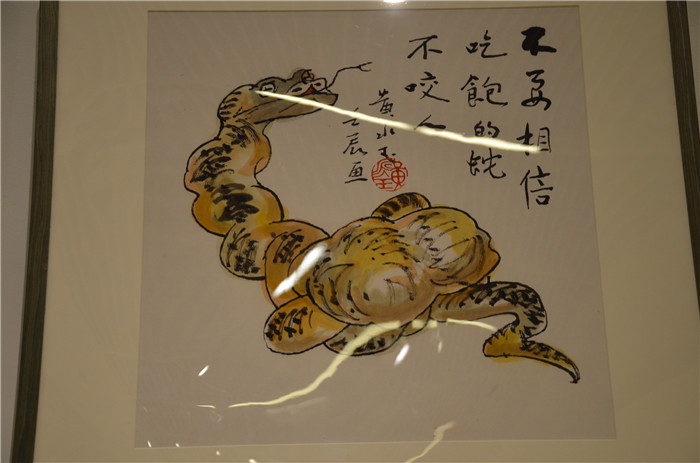 不要相信
吃飽的蛇
不咬人
黄永玉
壬辰画